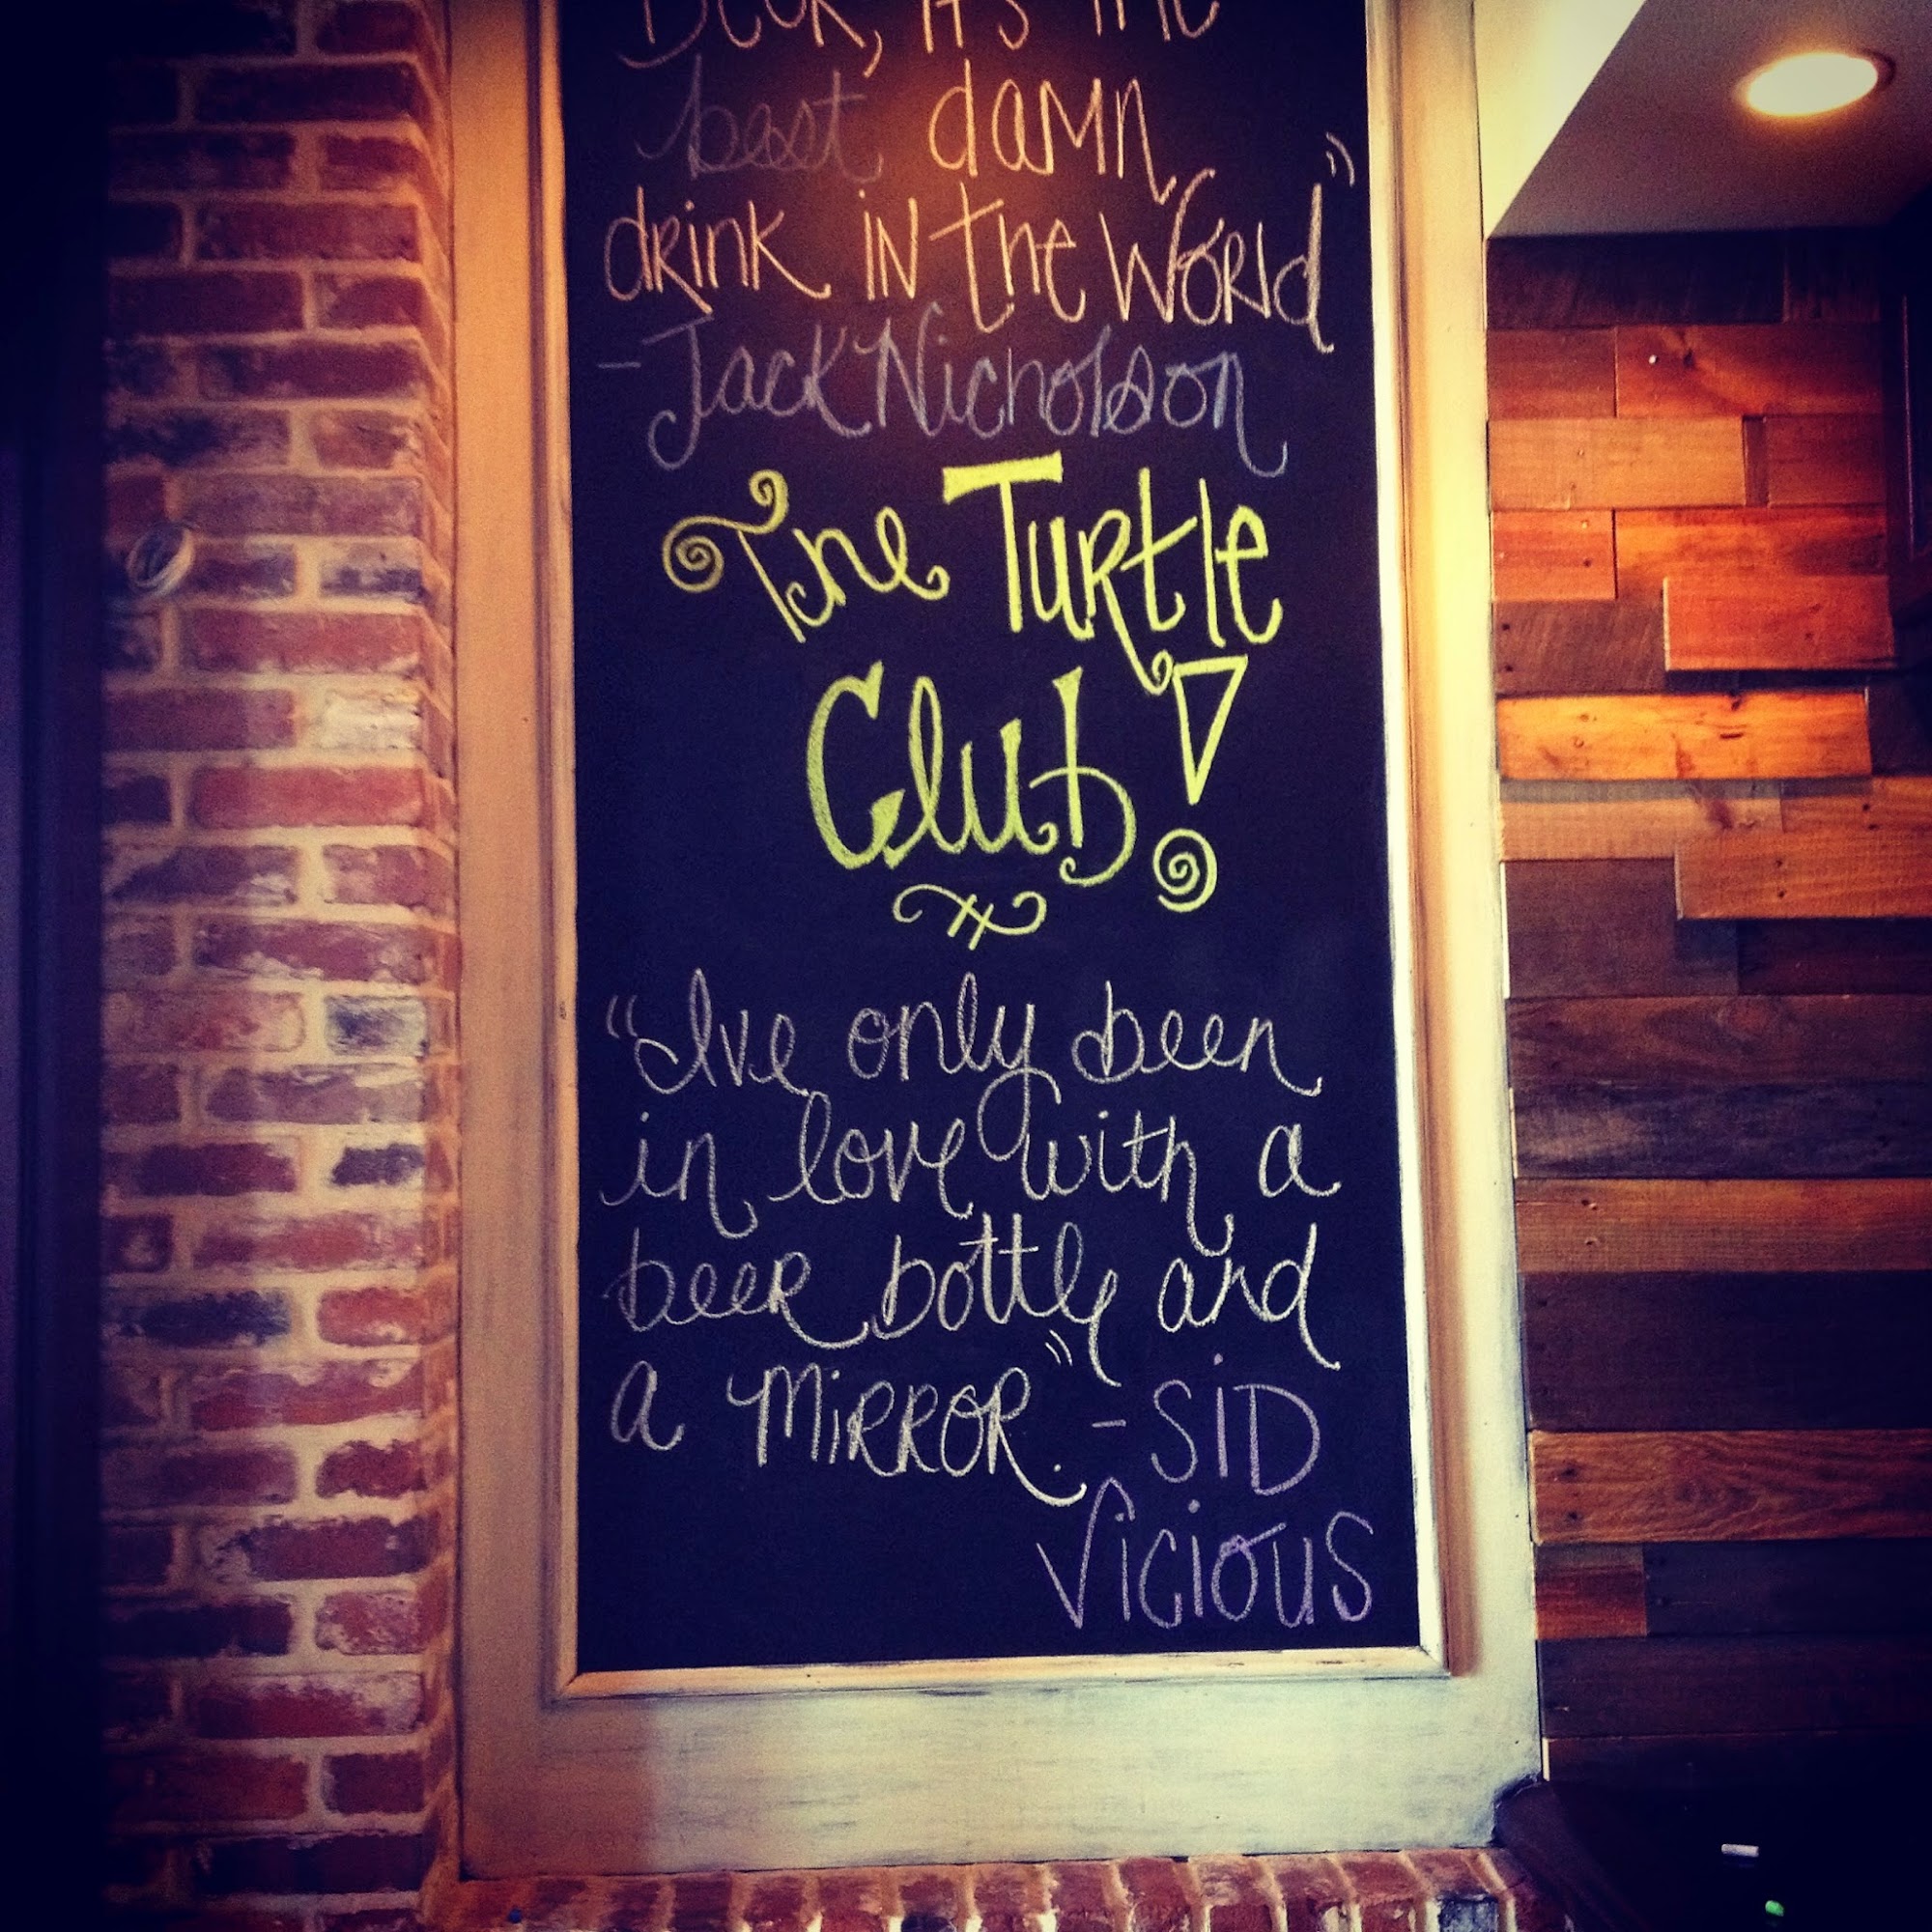 Beer, it's the
best damn
drink in the world"
-Jack Nicholson
The Turtle
Club!
"I've only been
in love with a
beer bottle and
a mirror." -Sid
Vicious